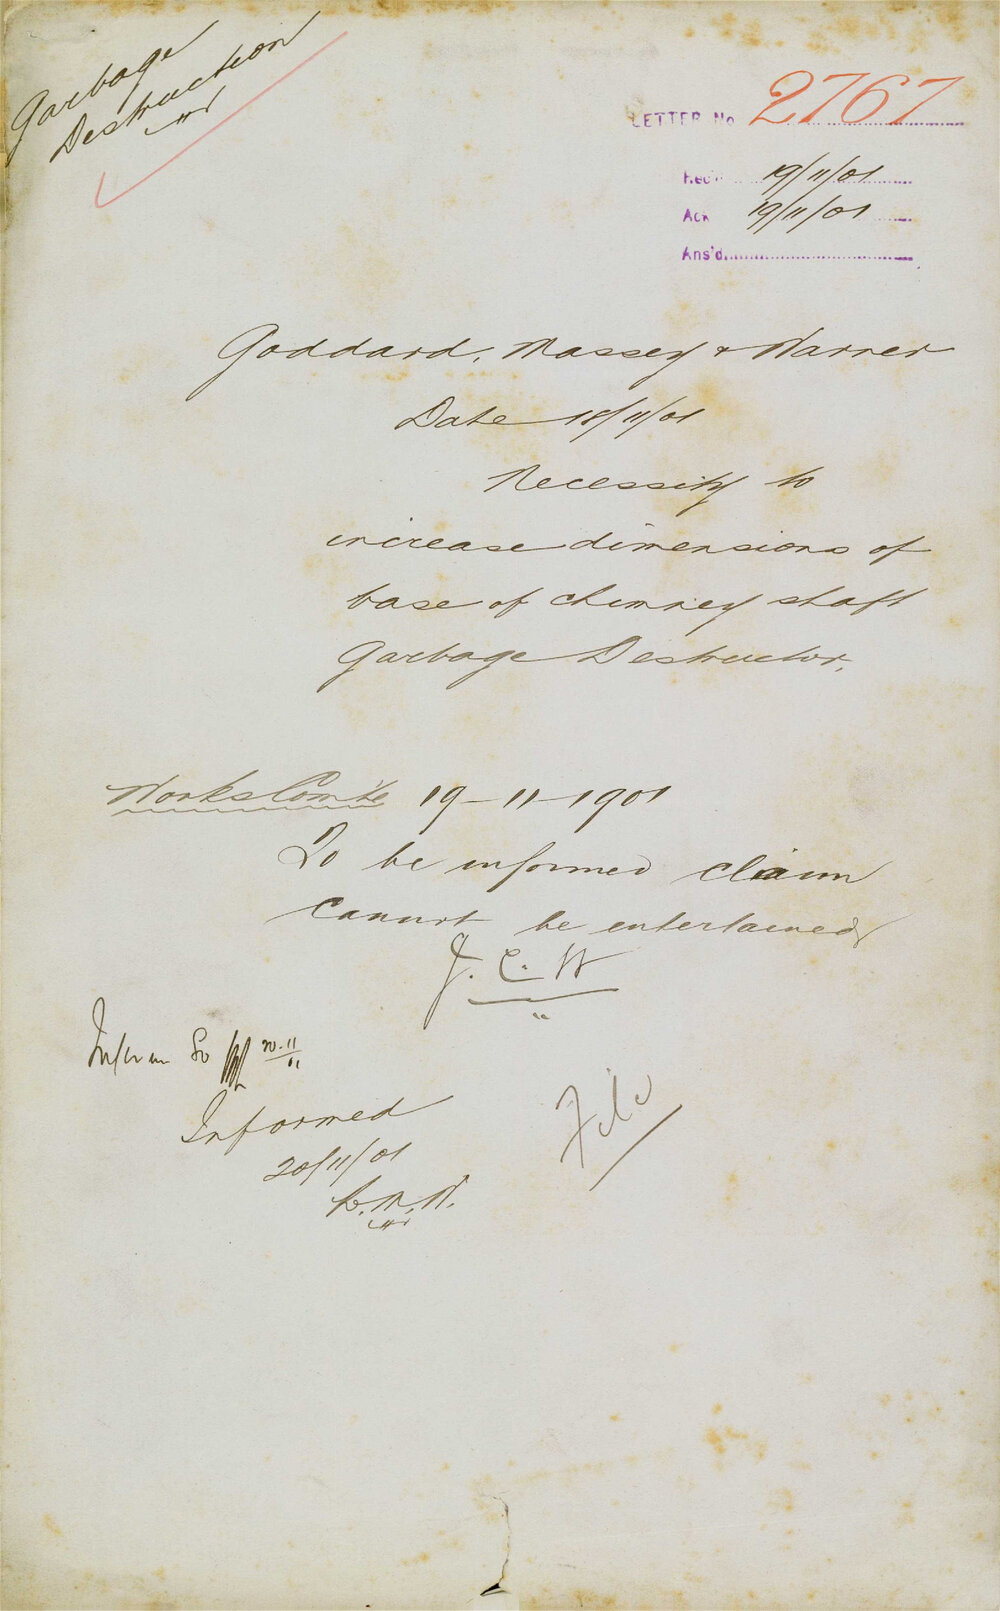 Garbage
Destruction
LETTER No 2767
Rec'd 19/11/01
Ack 19/11/01
Ans'd
Goddard, Massey & Warner
Date 18/11/01
Necessity to
increase dimensions of
base of chimney shaft
Garbage Destructor.
Works Comte 19-11-1901
To be informed claim
cannot be entertained
J. C. W
Inform So 20.11/01
Informed
20/11/01
File